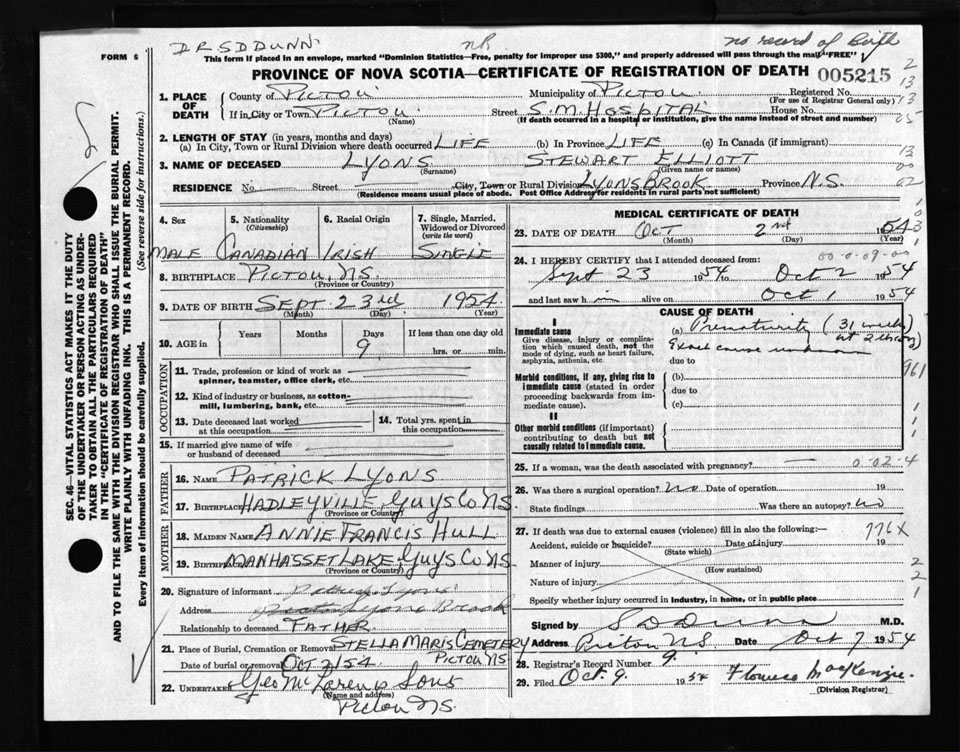 DR SD DUNN nR no record of Birth
FORM 6 This form if placed in an envelope, marked "Dominion Statistics—Free, penalty for improper use $300," and properly addressed will pass through the mail "FREE"
PROVINCE OF NOVA SCOTIA—CERTIFICATE OF REGISTRATION OF DEATH 005215
1. PLACE OF DEATH
County of PICTOU Municipality of PICTOU Registered No.
(For use of Registrar General only)
If in City or Town PICTOU Street S.M. HOSPITAL House No.
(Name) (If death occurred in a hospital or institution, give the name instead of street and number)
2. LENGTH OF STAY (in years, months and days)
(a) In City, Town or Rural Division where death occurred LIFE (b) In Province LIFE (c) In Canada (if immigrant)
3. NAME OF DECEASED LYONS STEWART ELLIOTT
(Surname) (Given name or names)
RESIDENCE No. Street City, Town or Rural Division LYONS BROOK Province N.S.
(Residence means usual place of abode. Post Office Address for residents in rural parts not sufficient)
4. Sex
MALE
5. Nationality
(Citizenship)
CANADIAN
6. Racial Origin
IRISH
7. Single, Married, Widowed or Divorced
(write the word)
SINGLE
8. BIRTHPLACE PICTOU, N.S.
(Province or Country)
9. DATE OF BIRTH SEPT. 23rd 1954
(Month) (Day) (Year)
10. AGE in
Years Months Days If less than one day old
9 hrs. or min.
OCCUPATION
11. Trade, profession or kind of work as
spinner, teamster, office clerk, etc.
12. Kind of industry or business, as cotton-
mill, lumbering, bank, etc.
13. Date deceased last worked
at this occupation
14. Total yrs. spent in
this occupation
15. If married give name of wife
or husband of deceased
FATHER
16. NAME PATRICK LYONS
17. BIRTHPLACE HADLEYVILLE, GUYS CO NS
(Province or Country)
MOTHER
18. MAIDEN NAME ANNIE FRANCIS HULL
19. BIRTHPLACE MANHASSET LAKE, GUYS CO NS
(Province or Country)
20. Signature of informant Patrick Lyons
Address Pictou Lyons Brook
Relationship to deceased FATHER
21. Place of Burial, Cremation or Removal STELLA MARIS CEMETERY
PICTOU NS.
Date of burial or removal OCT 2/54
22. UNDERTAKER Geo McLaren & Sons
(Name and address)
Pictou N.S.
MEDICAL CERTIFICATE OF DEATH
23. DATE OF DEATH Oct 2nd 1954
(Month) (Day) (Year)
24. I HEREBY CERTIFY that I attended deceased from:
Sept 23 1954 to Oct 2 1954
and last saw h im alive on Oct 1 1954
CAUSE OF DEATH
I
Immediate cause
Give disease, injury or complica-
tion which caused death, not the
mode of dying, such as heart failure,
asphyxia, asthenia, etc.
(a) Prematurity (31 weeks
Exact cause unknown
due to
Morbid conditions, if any, giving rise to
immediate cause (stated in order
proceeding backwards from im-
mediate cause).
(b)
due to
(c)
II
Other morbid conditions (if important)
contributing to death but not
causally related to immediate cause.
25. If a woman, was the death associated with pregnancy? 0-02-4
26. Was there a surgical operation? No Date of operation 19
State findings Was there an autopsy? No
27. If death was due to external causes (violence) fill in also the following:— 776X
Accident, suicide or homicide? Date of injury 19
(State which)
Manner of injury
(How sustained)
Nature of injury
Specify whether injury occurred in industry, in home, or in public place
Signed by S D Dunn M.D.
Address Pictou NS Date Oct 7 1954
28. Registrar's Record Number 9.
29. Filed Oct. 9. 1954 Florence MacKenzie.
(Division Registrar)
SEC. 46—VITAL STATISTICS ACT MAKES IT THE DUTY
OF THE UNDERTAKER OR PERSON ACTING AS UNDER-
TAKER TO OBTAIN ALL THE PARTICULARS REQUIRED
IN THE "CERTIFICATE OF REGISTRATION OF DEATH"
AND TO FILE THE SAME WITH THE DIVISION REGISTRAR WHO SHALL ISSUE THE BURIAL PERMIT.
WRITE PLAINLY WITH UNFADING INK. THIS IS A PERMANENT RECORD.
Every item of Information should be carefully supplied. (See reverse side for instructions.)